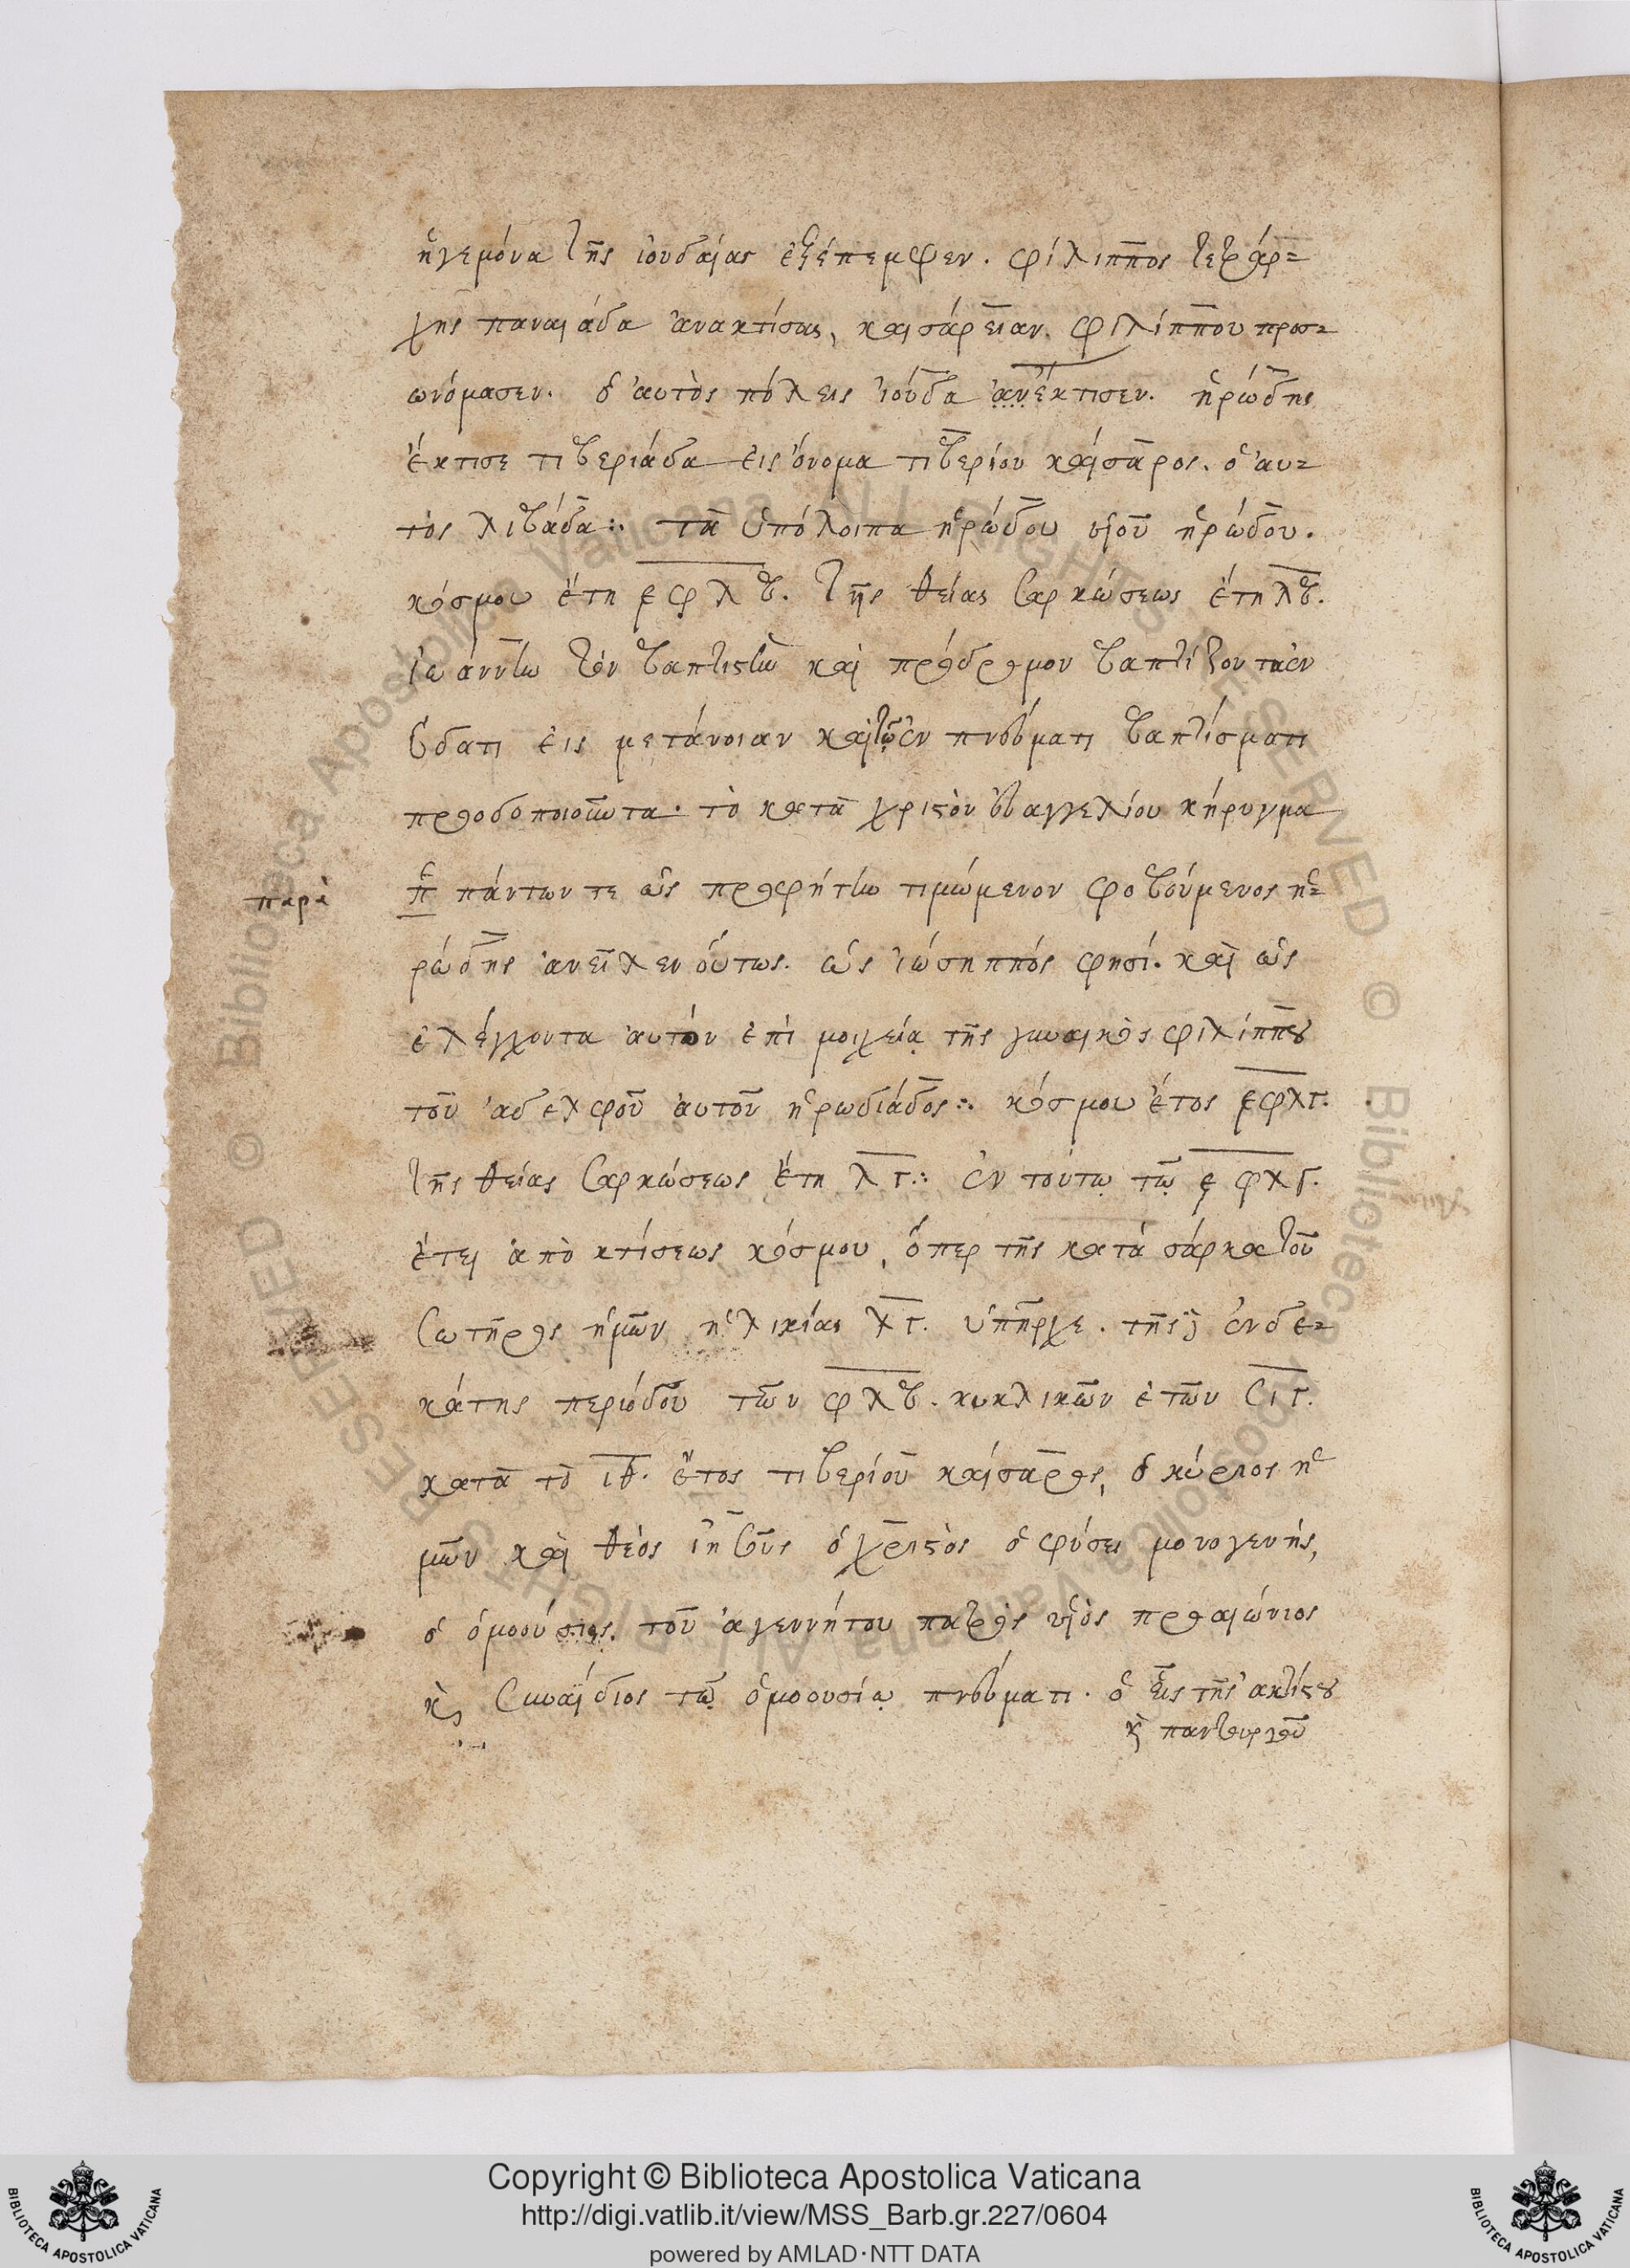 ἡγεμόνα τῆς ἰουδαίας ἐξέπεμψεν. φίλιππος τετράρ=
χης πανιάδα ἀνακτίσας, καισάρειαν φιλίππου προσ=
ωνόμασεν. ὁ αὐτὸς πόλεις ἰούδα ἀνέκτισεν. ἡρώδης
ἔκτισε τιβεριάδα εἰς ὄνομα τιβερίου καίσαρος. ὁ αὐ=
τὸς λιβάδα: τὰ ὑπόλοιπα ἡρώδου υἱοῦ ἡρώδου.
κόσμου ἔτη εφλβ. τῆς θείας σαρκώσεως ἔτη λβ.
ἰωάννην τὸν βαπτιστὴν καὶ πρόδρομον βαπτίζοντα ἐν
ὕδατι εἰς μετάνοιαν καὶ τῷ ἐν πνεύματι βαπτίσματι
προοδοποιοῦντα. τὸ κατὰ χριστὸν εὐαγγελίου κήρυγμα
παρὰ
π πάντων τε ὡς προφήτην τιμώμενον φοβούμενος ἡ=
ρώδης ἀνεῖλεν οὕτως. ὡς ἰώσηππός φησί. καὶ ὡς
ἐλέγχοντα αὐτὸν ἐπὶ μοιχείᾳ τῆς γυναικὸς φιλίππου
τοῦ ἀδελφοῦ αὐτοῦ ἡρωδιάδος: κόσμου ἔτος εφλγ.
τῆς θείας σαρκώσεως ἔτη λγ: ἐν τούτῳ τῷ εφλγ.
ἔτει ἀπὸ κτίσεως κόσμου, ὅπερ τῆς κατὰ σάρκα τοῦ
σωτῆρος ἡμῶν ἡλικίας λγ. ὑπῆρχε. τῆς δὲ ἑνδε=
κάτης περιόδου τῶν φλβ. κυκλικῶν ἐτῶν σιγ.
κατὰ τὸ ιθ. ἔτος τιβερίου καίσαρος, ὁ κύριος ἡ
μῶν καὶ θεὸς ἰησοῦς ὁ χριστὸς ὁ φύσει μονογενής,
ὁ ὁμοούσιος τοῦ ἀγεννήτου πατρὸς υἱὸς προαιώνιος
καὶ συναΐδιος τῷ ὁμοουσίῳ πνεύματι. ὁ εἷς τῆς ἀκτίστου
καὶ παντουργοῦ
Copyright © Biblioteca Apostolica Vaticana
http://digi.vatlib.it/view/MSS_Barb.gr.227/0604
powered by AMLAD·NTT DATA
BIBLIOTECA APOSTOLICA VATICANA
BIBLIOTECA APOSTOLICA VATICANA